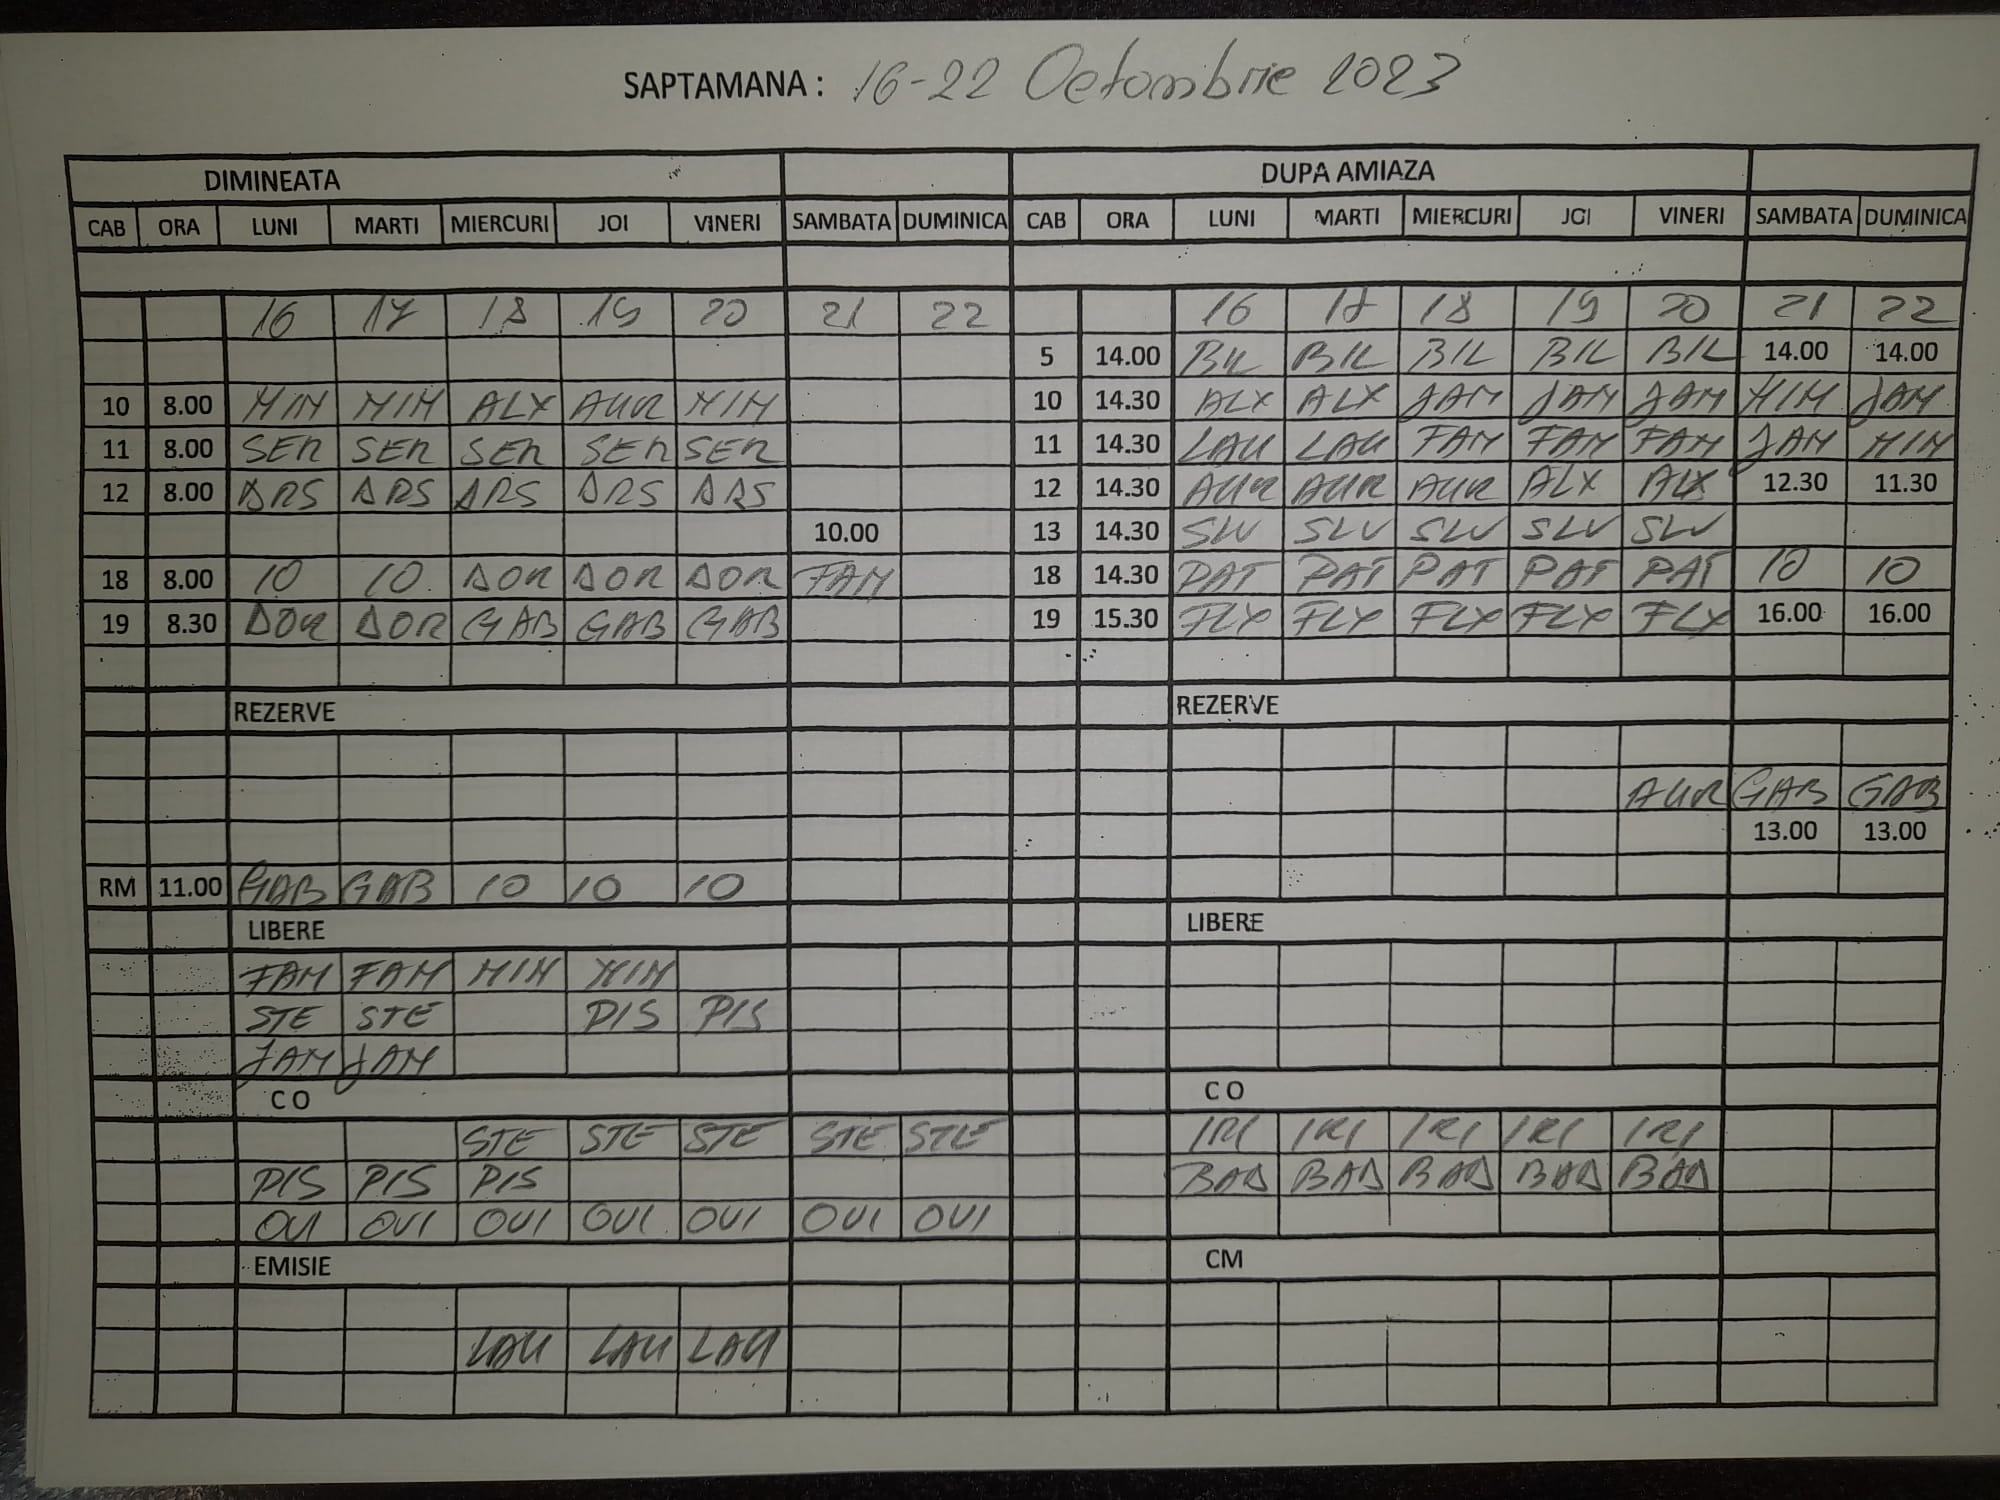 SAPTAMANA : 16-22 Octombrie 2023
DIMINEATA DUPA AMIAZA
CAB ORA LUNI MARTI MIERCURI JOI VINERI SAMBATA DUMINICA CAB ORA LUNI MARTI MIERCURI JOI VINERI SAMBATA DUMINICA
16 17 18 19 20 21 22 16 17 18 19 20 21 22
5 14.00 BIL BIL BIL BIL BIL 14.00 14.00
10 8.00 MIM MIM ALX AUR MIM 10 14.30 ALX ALX JAM JAM JAM MIM JAM
11 8.00 SER SER SER SER SER 11 14.30 LAU LAU FAM FAM FAM JAM MIM
12 8.00 DRS DRS DRS DRS DRS 12 14.30 AUR AUR AUR ALX ALX 12.30 11.30
10.00 13 14.30 SLV SLV SLV SLV SLV
18 8.00 10 10 DOR DOR DOR FAM 18 14.30 PAT PAT PAT PAT PAT 10 10
19 8.30 DOR DOR GAB GAB GAB 19 15.30 FLX FLX FLX FLX FLX 16.00 16.00
REZERVE REZERVE
AUR GAB GAB
13.00 13.00
RM 11.00 GAB GAB 10 10 10
LIBERE LIBERE
FAM FAM MIM MIM
STE STE PIS PIS
JAM JAM
C O C O
STE STE STE STE STE IRI IRI IRI IRI IRI
PIS PIS PIS BAD BAD BAD BAD BAD
OVI OVI OVI OVI OVI OVI OVI
EMISIE CM
LAU LAU LAU